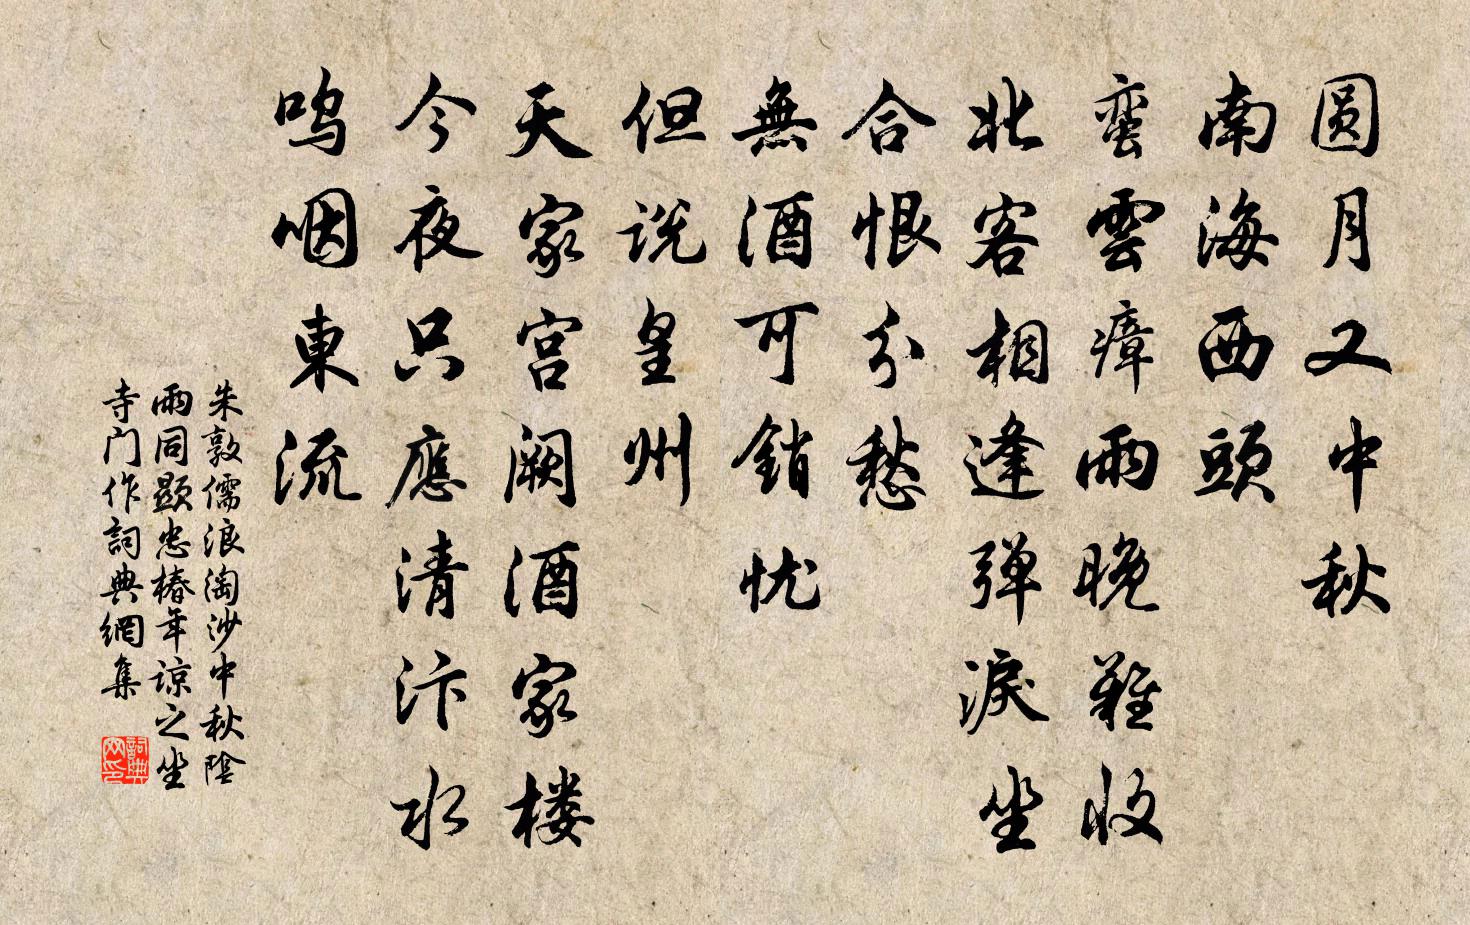 圆月又中秋
南海西頭
蛮雲瘴雨晚難收
北客相逢弹淚坐
合恨分愁
無酒可銷忧
但说皇州
天家宫阙酒家楼
今夜只應清汴水
呜咽東流
朱敦儒浪淘沙中秋陰
雨同顯忠椿年谅之坐
寺门作詞典網集
詞典
网印